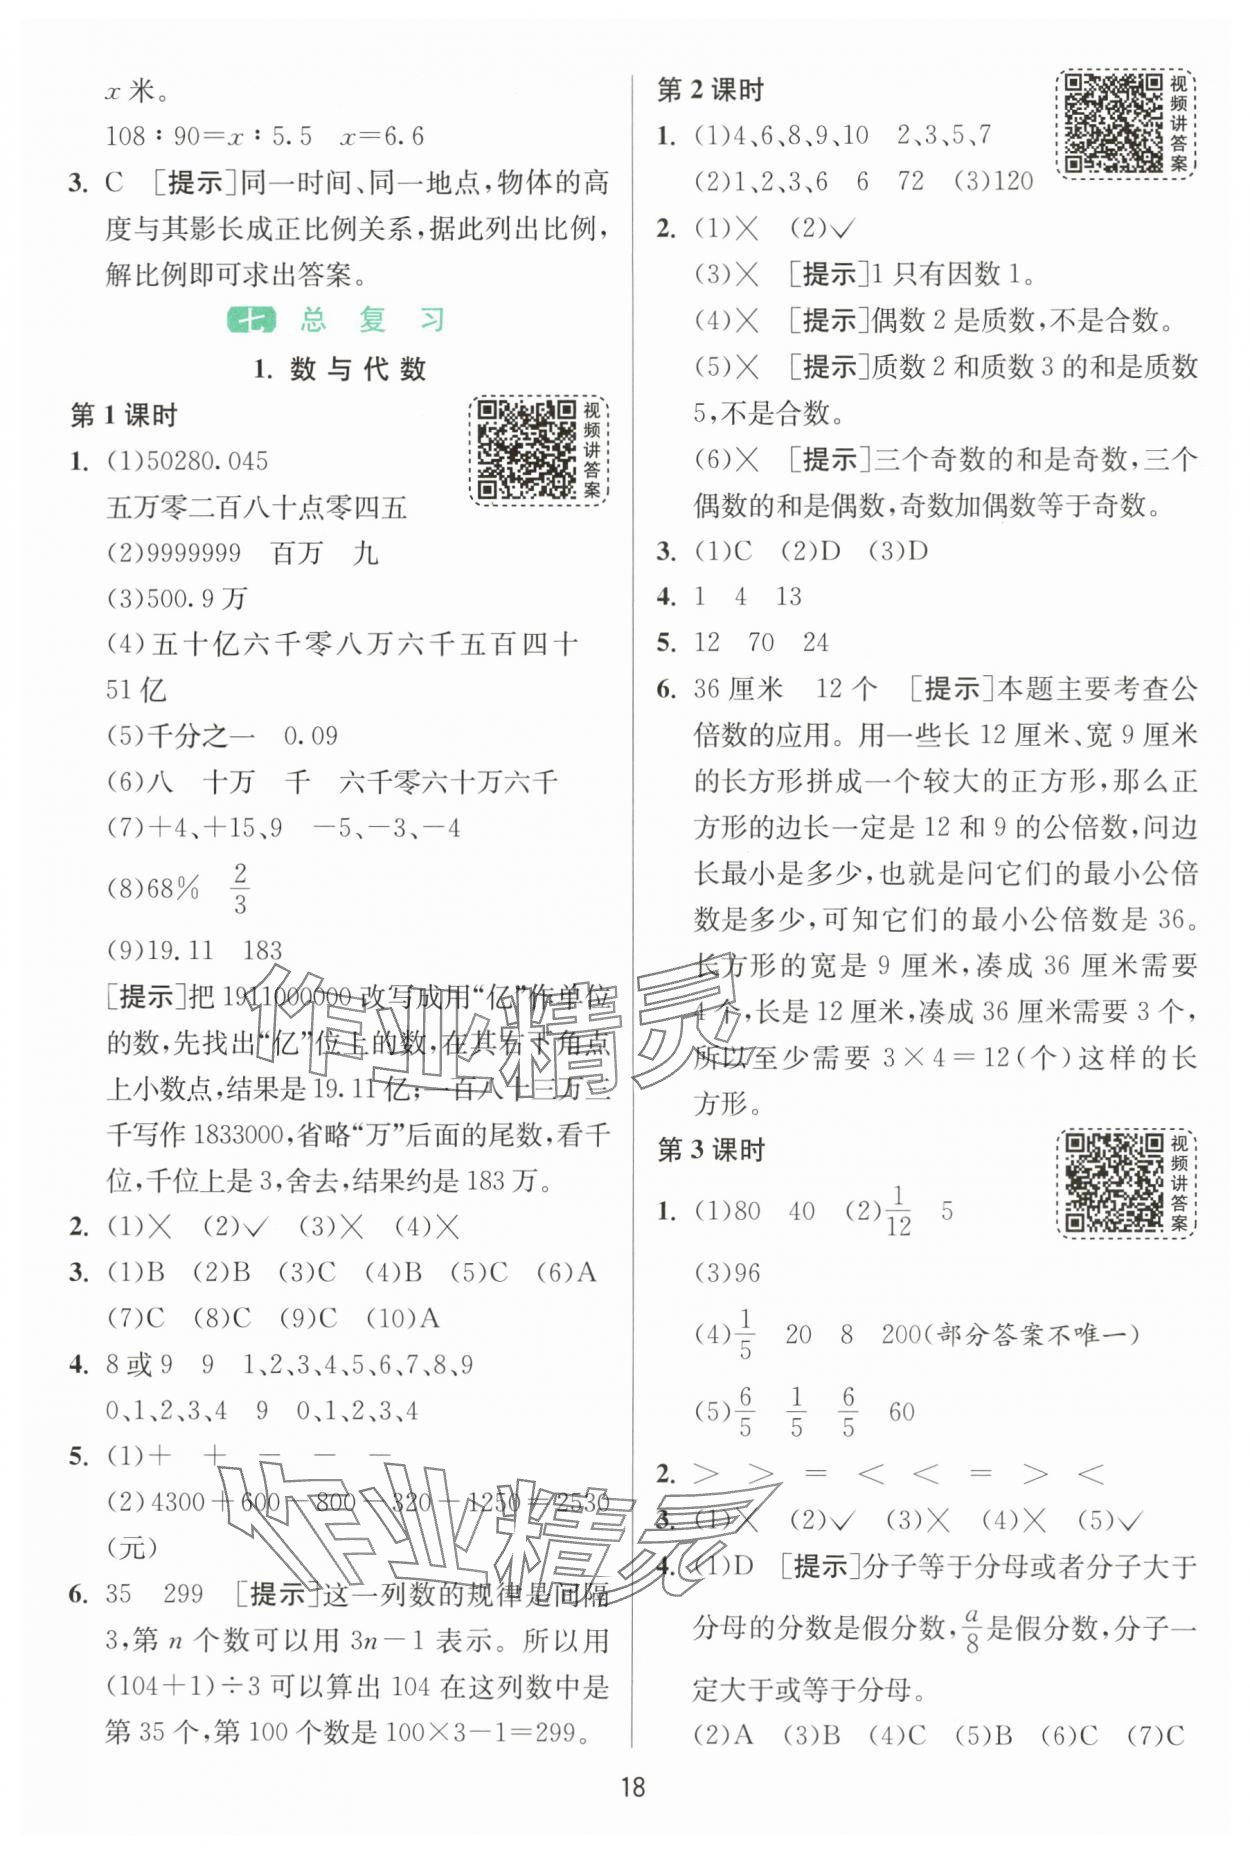 x 米。
108∶90=x∶5.5 x=6.6
3. C [提示]同一时间、同一地点,物体的高
度与其影长成正比例关系,据此列出比例,
解比例即可求出答案。
七 总复习
1. 数与代数
第 1 课时
视频讲答案
1. (1)50280.045
五万零二百八十点零四五
(2)9999999 百万 九
(3)500.9 万
(4)五十亿六千零八万六千五百四十
51 亿
(5)千分之一 0.09
(6)八 十万 千 六千零六十万六千
(7)+4、+15、9 -5、-3、-4
(8)68% 2/3
(9)19.11 183
[提示]把 1911000000 改写成用“亿”作单位
的数,先找出“亿”位上的数,在其右下角点
上小数点,结果是 19.11 亿;一百八十三万三
千写作 1833000,省略“万”后面的尾数,看千
位,千位上是 3,舍去,结果约是 183 万。
2. (1)× (2)✓ (3)× (4)×
3. (1)B (2)B (3)C (4)B (5)C (6)A
(7)C (8)C (9)C (10)A
4. 8 或 9 9 1、2、3、4、5、6、7、8、9
0、1、2、3、4 9 0、1、2、3、4
5. (1)+ + - - -
(2)4300+600-800-320-1250=2530
(元)
6. 35 299 [提示]这一列数的规律是间隔
3,第 n 个数可以用 3n-1 表示。所以用
(104+1)÷3 可以算出 104 在这列数中是
第 35 个,第 100 个数是 100×3-1=299。
第 2 课时
视频讲答案
1. (1)4、6、8、9、10 2、3、5、7
(2)1、2、3、6 6 72 (3)120
2. (1)× (2)✓
(3)× [提示]1 只有因数 1。
(4)× [提示]偶数 2 是质数,不是合数。
(5)× [提示]质数 2 和质数 3 的和是质数
5,不是合数。
(6)× [提示]三个奇数的和是奇数,三个
偶数的和是偶数,奇数加偶数等于奇数。
3. (1)C (2)D (3)D
4. 1 4 13
5. 12 70 24
6. 36 厘米 12 个 [提示]本题主要考查公
倍数的应用。用一些长 12 厘米、宽 9 厘米
的长方形拼成一个较大的正方形,那么正
方形的边长一定是 12 和 9 的公倍数,问边
长最小是多少,也就是问它们的最小公倍
数是多少,可知它们的最小公倍数是 36。
长方形的宽是 9 厘米,凑成 36 厘米需要
4 个,长是 12 厘米,凑成 36 厘米需要 3 个,
所以至少需要 3×4=12(个)这样的长
方形。
第 3 课时
视频讲答案
1. (1)80 40 (2)1/12 5
(3)96
(4)1/5 20 8 200(部分答案不唯一)
(5)6/5 1/5 6/5 60
2. > > = < < = > <
3. (1)× (2)✓ (3)× (4)× (5)✓
4. (1)D [提示]分子等于分母或者分子大于
分母的分数是假分数,a/8是假分数,分子一
定大于或等于分母。
(2)A (3)B (4)C (5)B (6)C (7)C
18
作业精灵
作业精灵